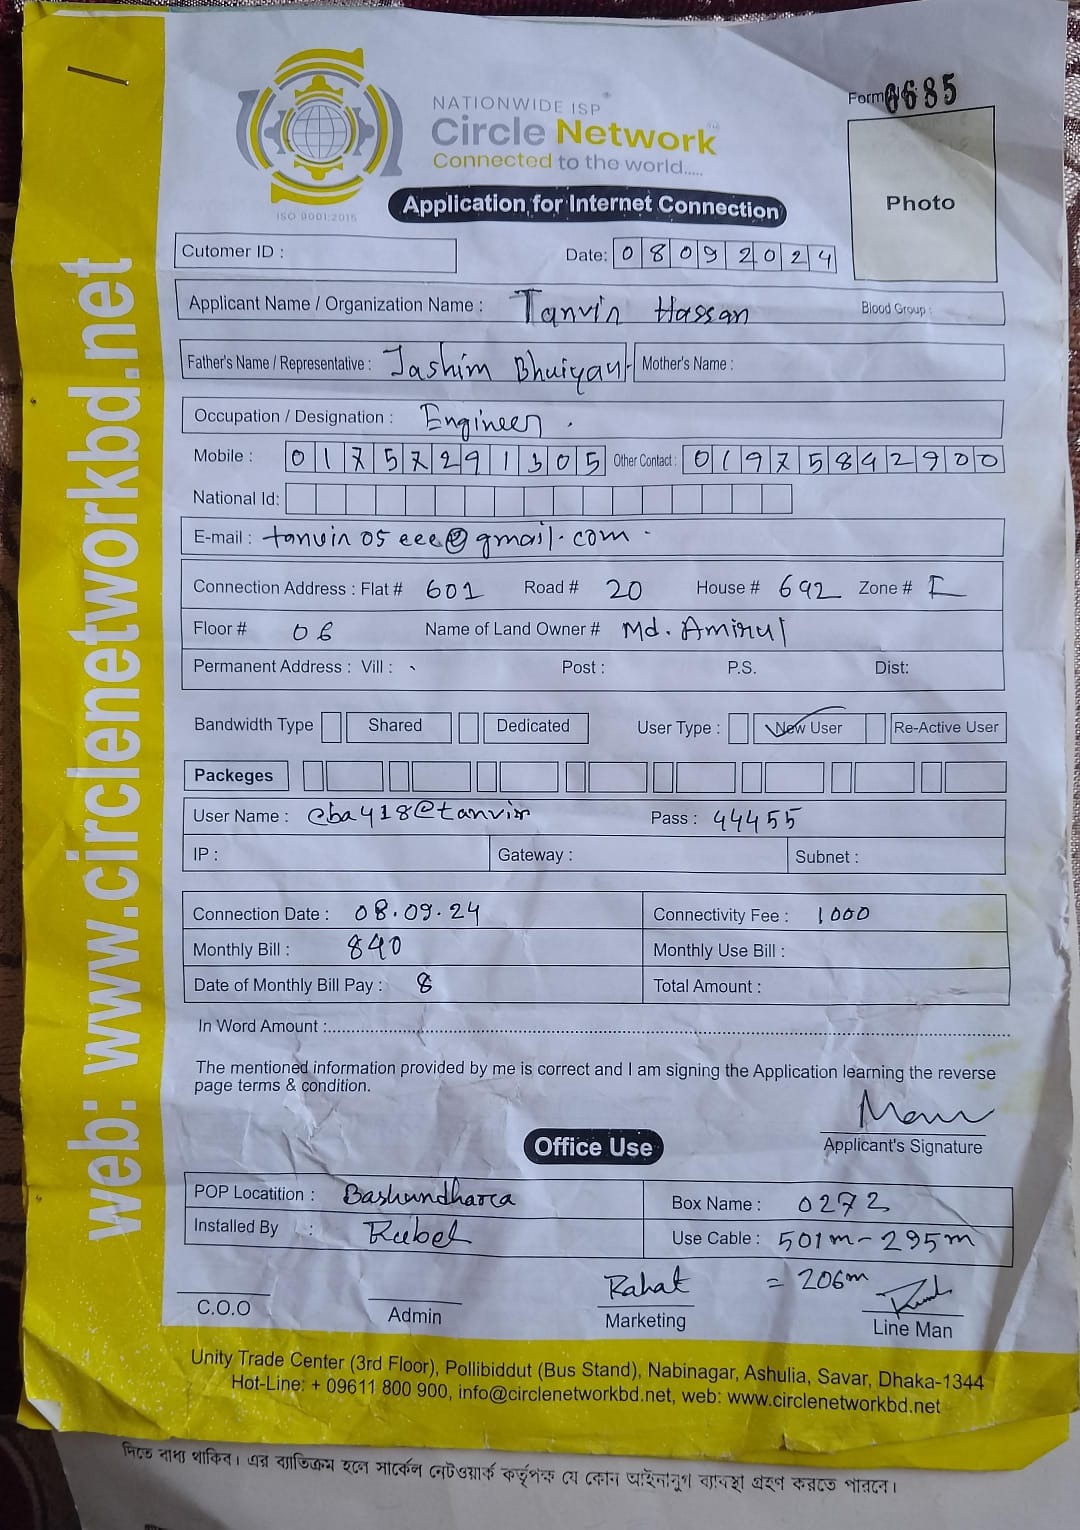 Form 6685
NATIONWIDE ISP
Circle Network
Connected to the world.....
ISO 9001:2015
Application for Internet Connection
Photo
Cutomer ID :
Date: 08092024
Applicant Name / Organization Name : Tanvir Hassan Blood Group :
Father's Name / Representative : Jashim Bhuiyan Mother's Name :
Occupation / Designation : Engineer.
Mobile : 01757291305 Other Contact : 01975842900
National Id:
E-mail : tanvir05eee@gmail.com
Connection Address : Flat # 601 Road # 20 House # 692 Zone #
Floor # 06 Name of Land Owner # Md. Amirul
Permanent Address : Vill : Post : P.S. Dist:
Bandwidth Type Shared Dedicated User Type : New User Re-Active User
Packeges
User Name : cba418@tanvir Pass : 44455
IP : Gateway : Subnet :
Connection Date : 08.09.24 Connectivity Fee : 1000
Monthly Bill : 840 Monthly Use Bill :
Date of Monthly Bill Pay : 8 Total Amount :
In Word Amount :
The mentioned information provided by me is correct and I am signing the Application learning the reverse
page terms & condition.
Applicant's Signature
Office Use
POP Locatition : Bashundhara Box Name : 0272
Installed By : Rubel Use Cable : 501m-295m
Rahat = 206m
C.O.O Admin Marketing Line Man
Unity Trade Center (3rd Floor), Pollibiddut (Bus Stand), Nabinagar, Ashulia, Savar, Dhaka-1344
Hot-Line: + 09611 800 900, info@circlenetworkbd.net, web: www.circlenetworkbd.net
web: www.circlenetworkbd.net
দিতে বাধ্য থাকিব। এর ব্যতিক্রম হলে সার্কেল নেটওয়ার্ক কর্তৃপক্ষ যে কোন আইনানুগ ব্যবস্থা গ্রহণ করতে পারবে।